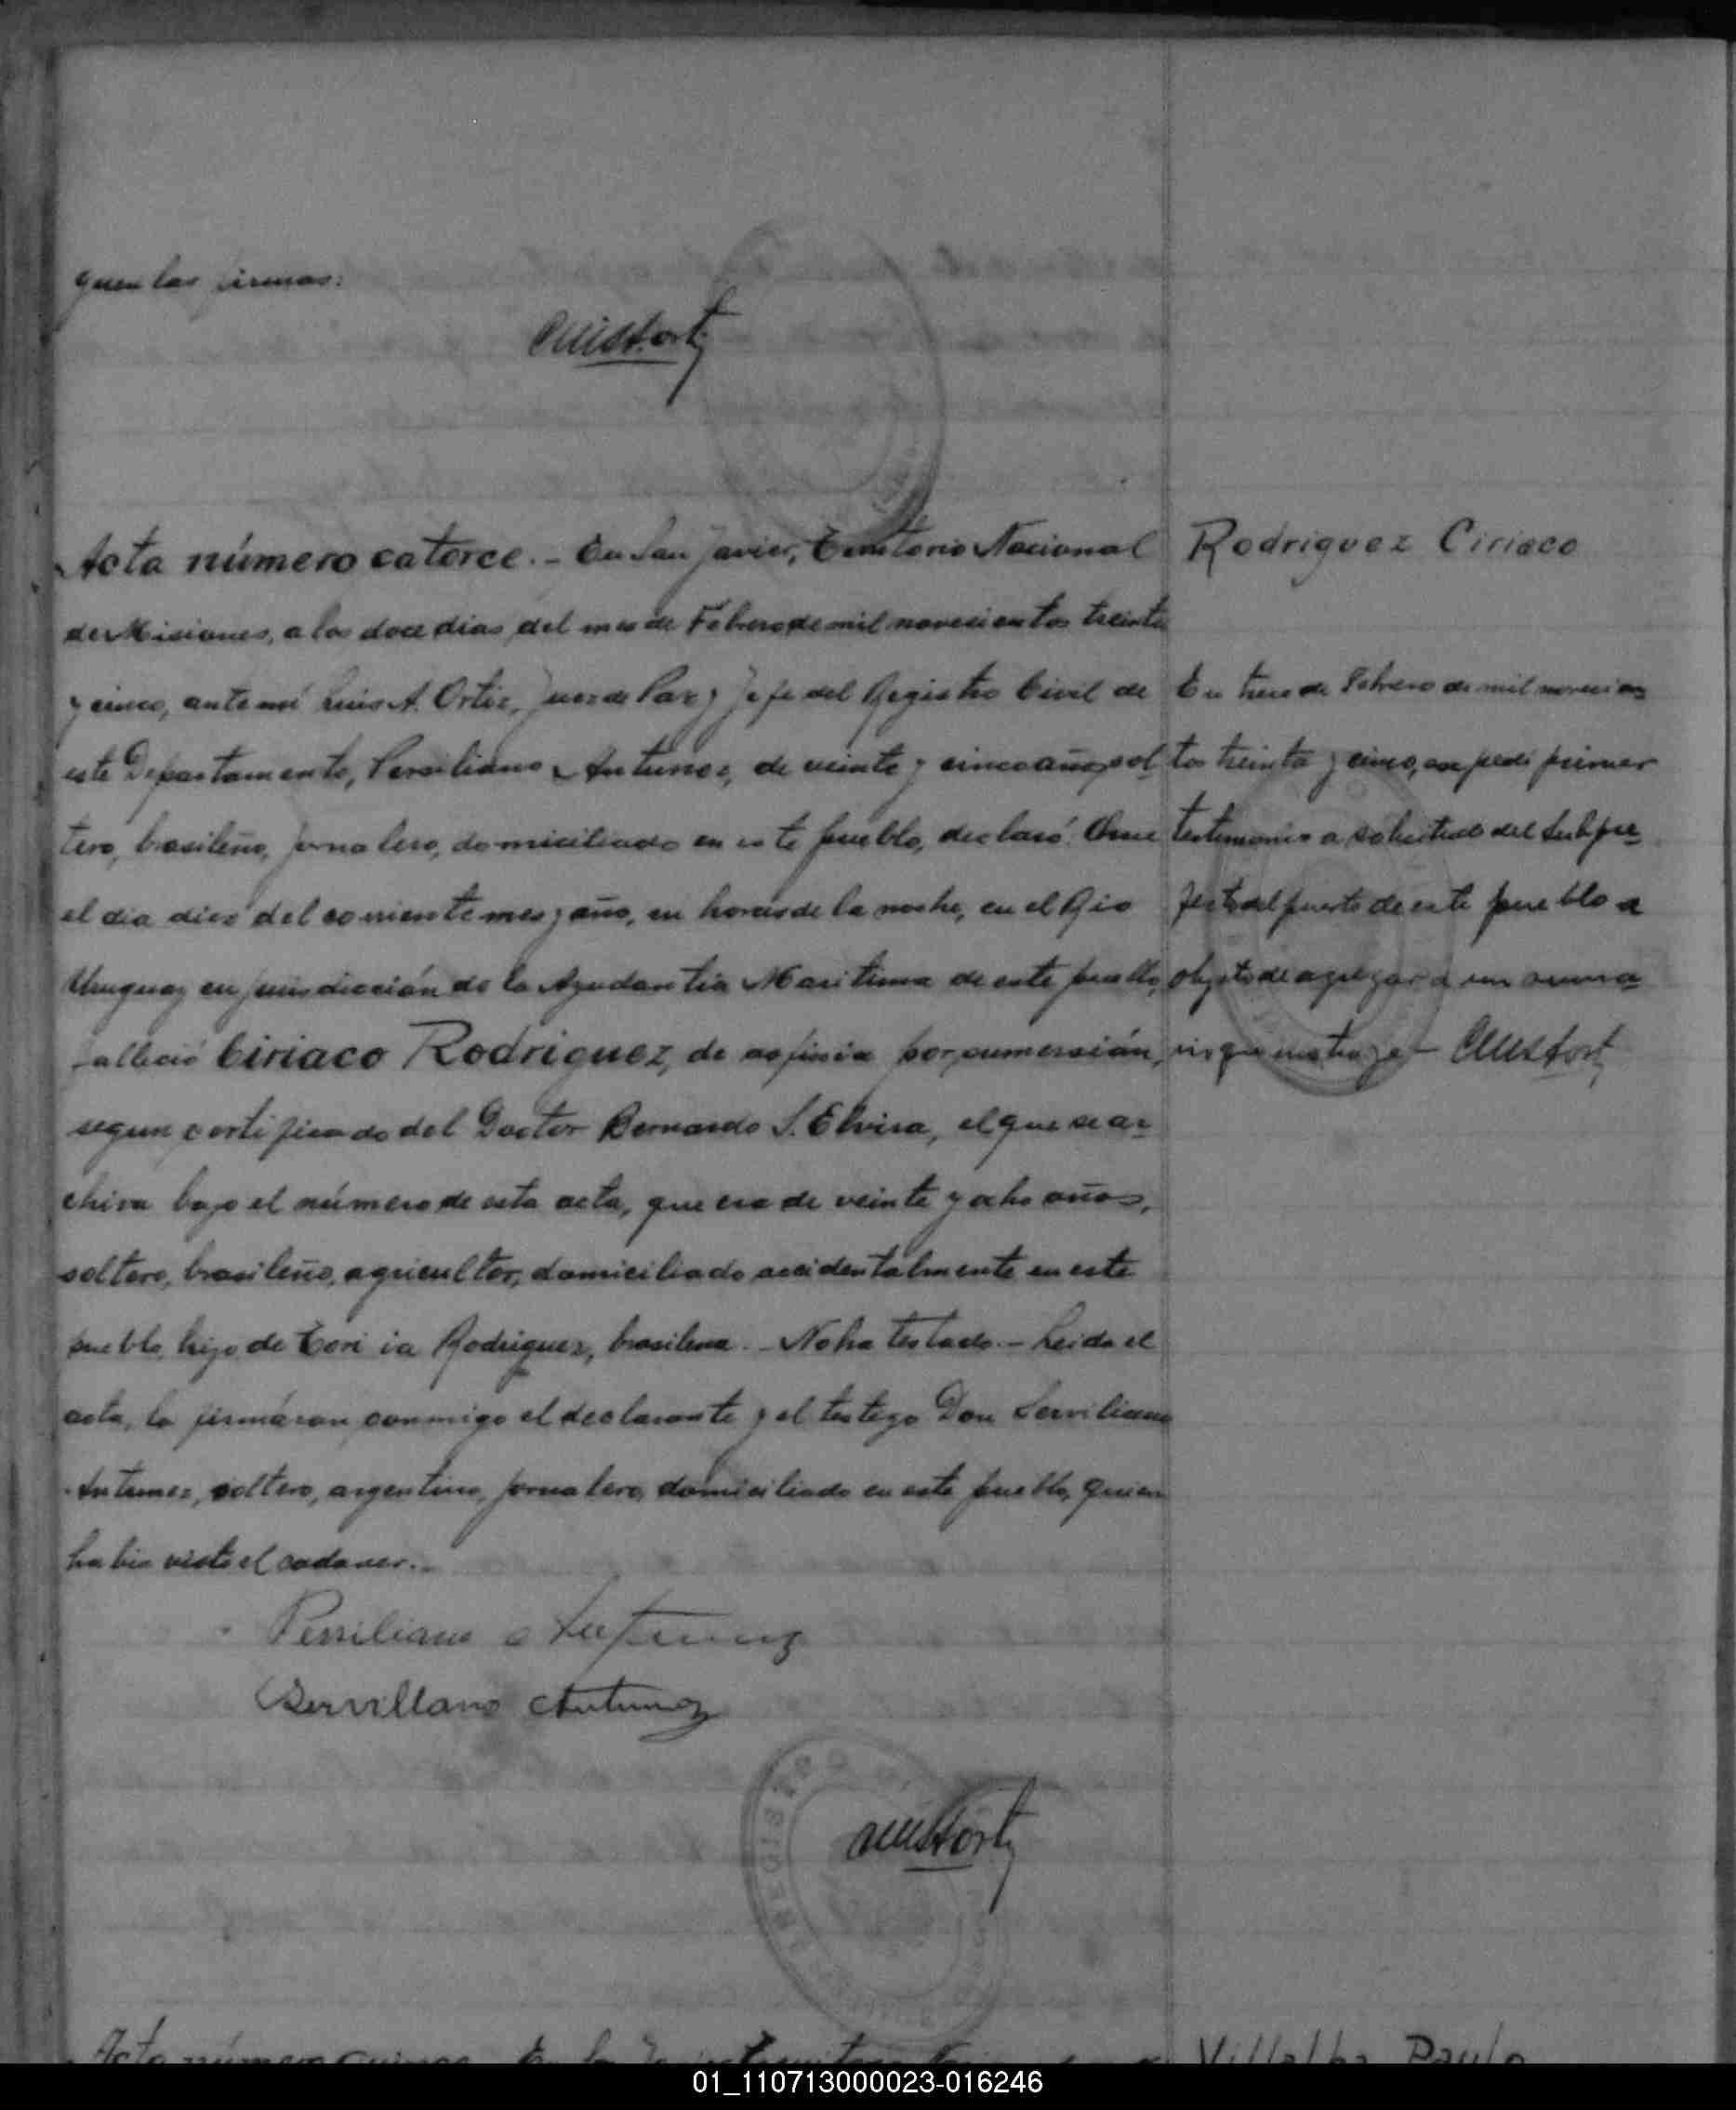 quen las firmas:
Luis A. Ortiz
Acta número catorce.- En San Javier, Territorio Nacional
de Misiones, a los doce dias del mes de Febrero de mil novecientos treinta
y cinco, ante mí Luis A. Ortiz, Juez de Paz y Jefe del Registro Civil de
este Departamento, Persiliano Antunez, de veinte y cinco años, sol
tero, brasileño, jornalero, domiciliado en este pueblo, declaró: Que
el dia diez del corriente mes y año, en horas de la noche, en el Rio
Uruguay en jurisdicción de la Ayudantia Maritima de este pueblo,
falleció Ciriaco Rodriguez, de asfixia por sumersión,
segun certificado del Doctor Bernardo S. Elvira, el que se ar=
chiva bajo el número de esta acta, que era de veinte y ocho años,
soltero, brasileño, agricultor, domiciliado accidentalmente en este
pueblo, hijo de Rodriguez, brasilena.- No ha testado.- Leida el
acta, la firmáron conmigo el declarante y el testigo Don Serviliano
Antunez, soltero, argentino, jornalero, domiciliado en este pueblo, quien
habia visto el cadaver.-
Persiliano Antunez
Servillano Antunez
Luis A. Ortiz
Rodriguez Ciriaco
En trece de Febrero de mil novecien
tos treinta y cinco, expedi primer
testimonio a solicitud del Subpre=
fecto del puerto de este pueblo a
objeto de agregar a un suma=
rio que instruye- Luis A. Ortiz
REGISTRO
Acta número quince
Villalba Paulo
01_110713000023-016246